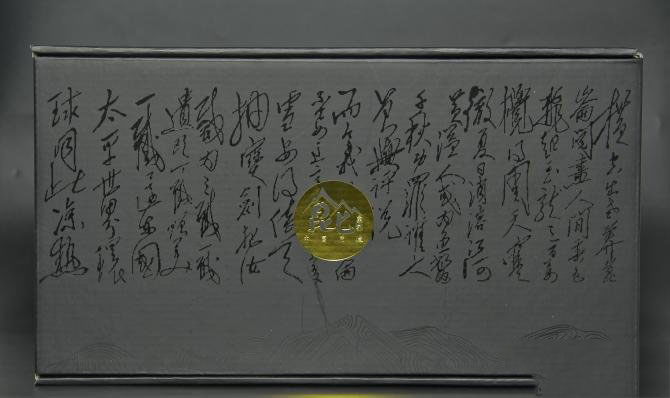 横空出世莽崑
崙阅尽人间春色
飛起玉龍三百万
攪得周天寒
徹夏日消溶江河
横溢人或为鱼鳖
千秋功罪谁人
曾與评说
而今我
崙
不要这
多
雪安得倚天
抽寶劍把汝
裁为三截一截
遗欧一截赠美
一截还东國
太平世界環
球同此凉热
昆仑